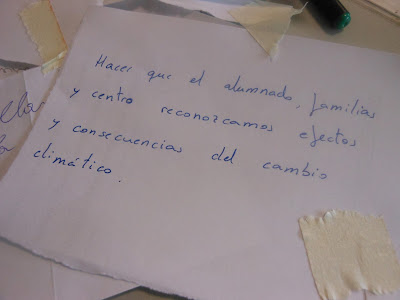 Hacer que el alumnado, familias
y centro reconozcamos efectos
y consecuencias del cambio
climático.